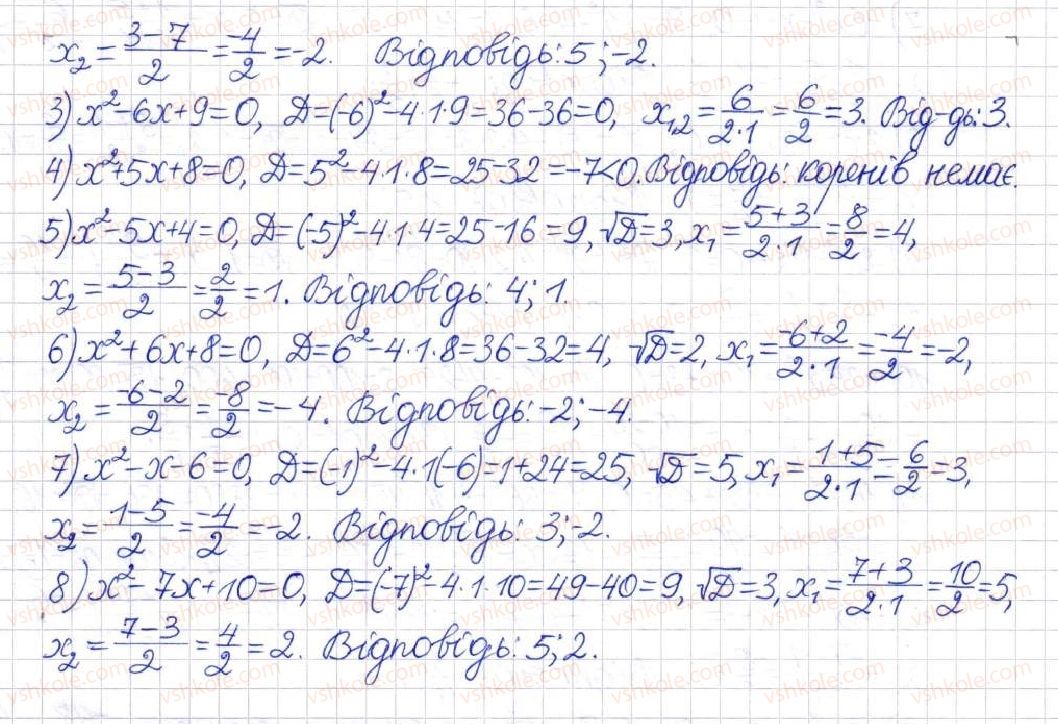 x₂ = (3-7)/2 = -4/2 = -2. Відповідь: 5; -2.
3) x²-6x+9=0, D=(-6)²-4·1·9=36-36=0, x₁,₂ = 6/(2·1) = 6/2 = 3. Від-дь: 3.
4) x²+5x+8=0, D=5²-4·1·8=25-32=-7<0. Відповідь: коренів немає.
5) x²-5x+4=0, D=(-5)²-4·1·4=25-16=9, √D=3, x₁ = (5+3)/(2·1) = 8/2 = 4,
x₂ = (5-3)/2 = 2/2 = 1. Відповідь: 4; 1.
6) x²+6x+8=0, D=6²-4·1·8=36-32=4, √D=2, x₁ = (-6+2)/(2·1) = -4/2 = -2,
x₂ = (-6-2)/2 = -8/2 = -4. Відповідь: -2; -4.
7) x²-x-6=0, D=(-1)²-4·1(-6)=1+24=25, √D=5, x₁ = (1+5)/(2·1) = 6/2 = 3,
x₂ = (1-5)/2 = -4/2 = -2. Відповідь: 3; -2.
8) x²-7x+10=0, D=(-7)²-4·1·10=49-40=9, √D=3, x₁ = (7+3)/(2·1) = 10/2 = 5,
x₂ = (7-3)/2 = 4/2 = 2. Відповідь: 5; 2.
vshkole.com